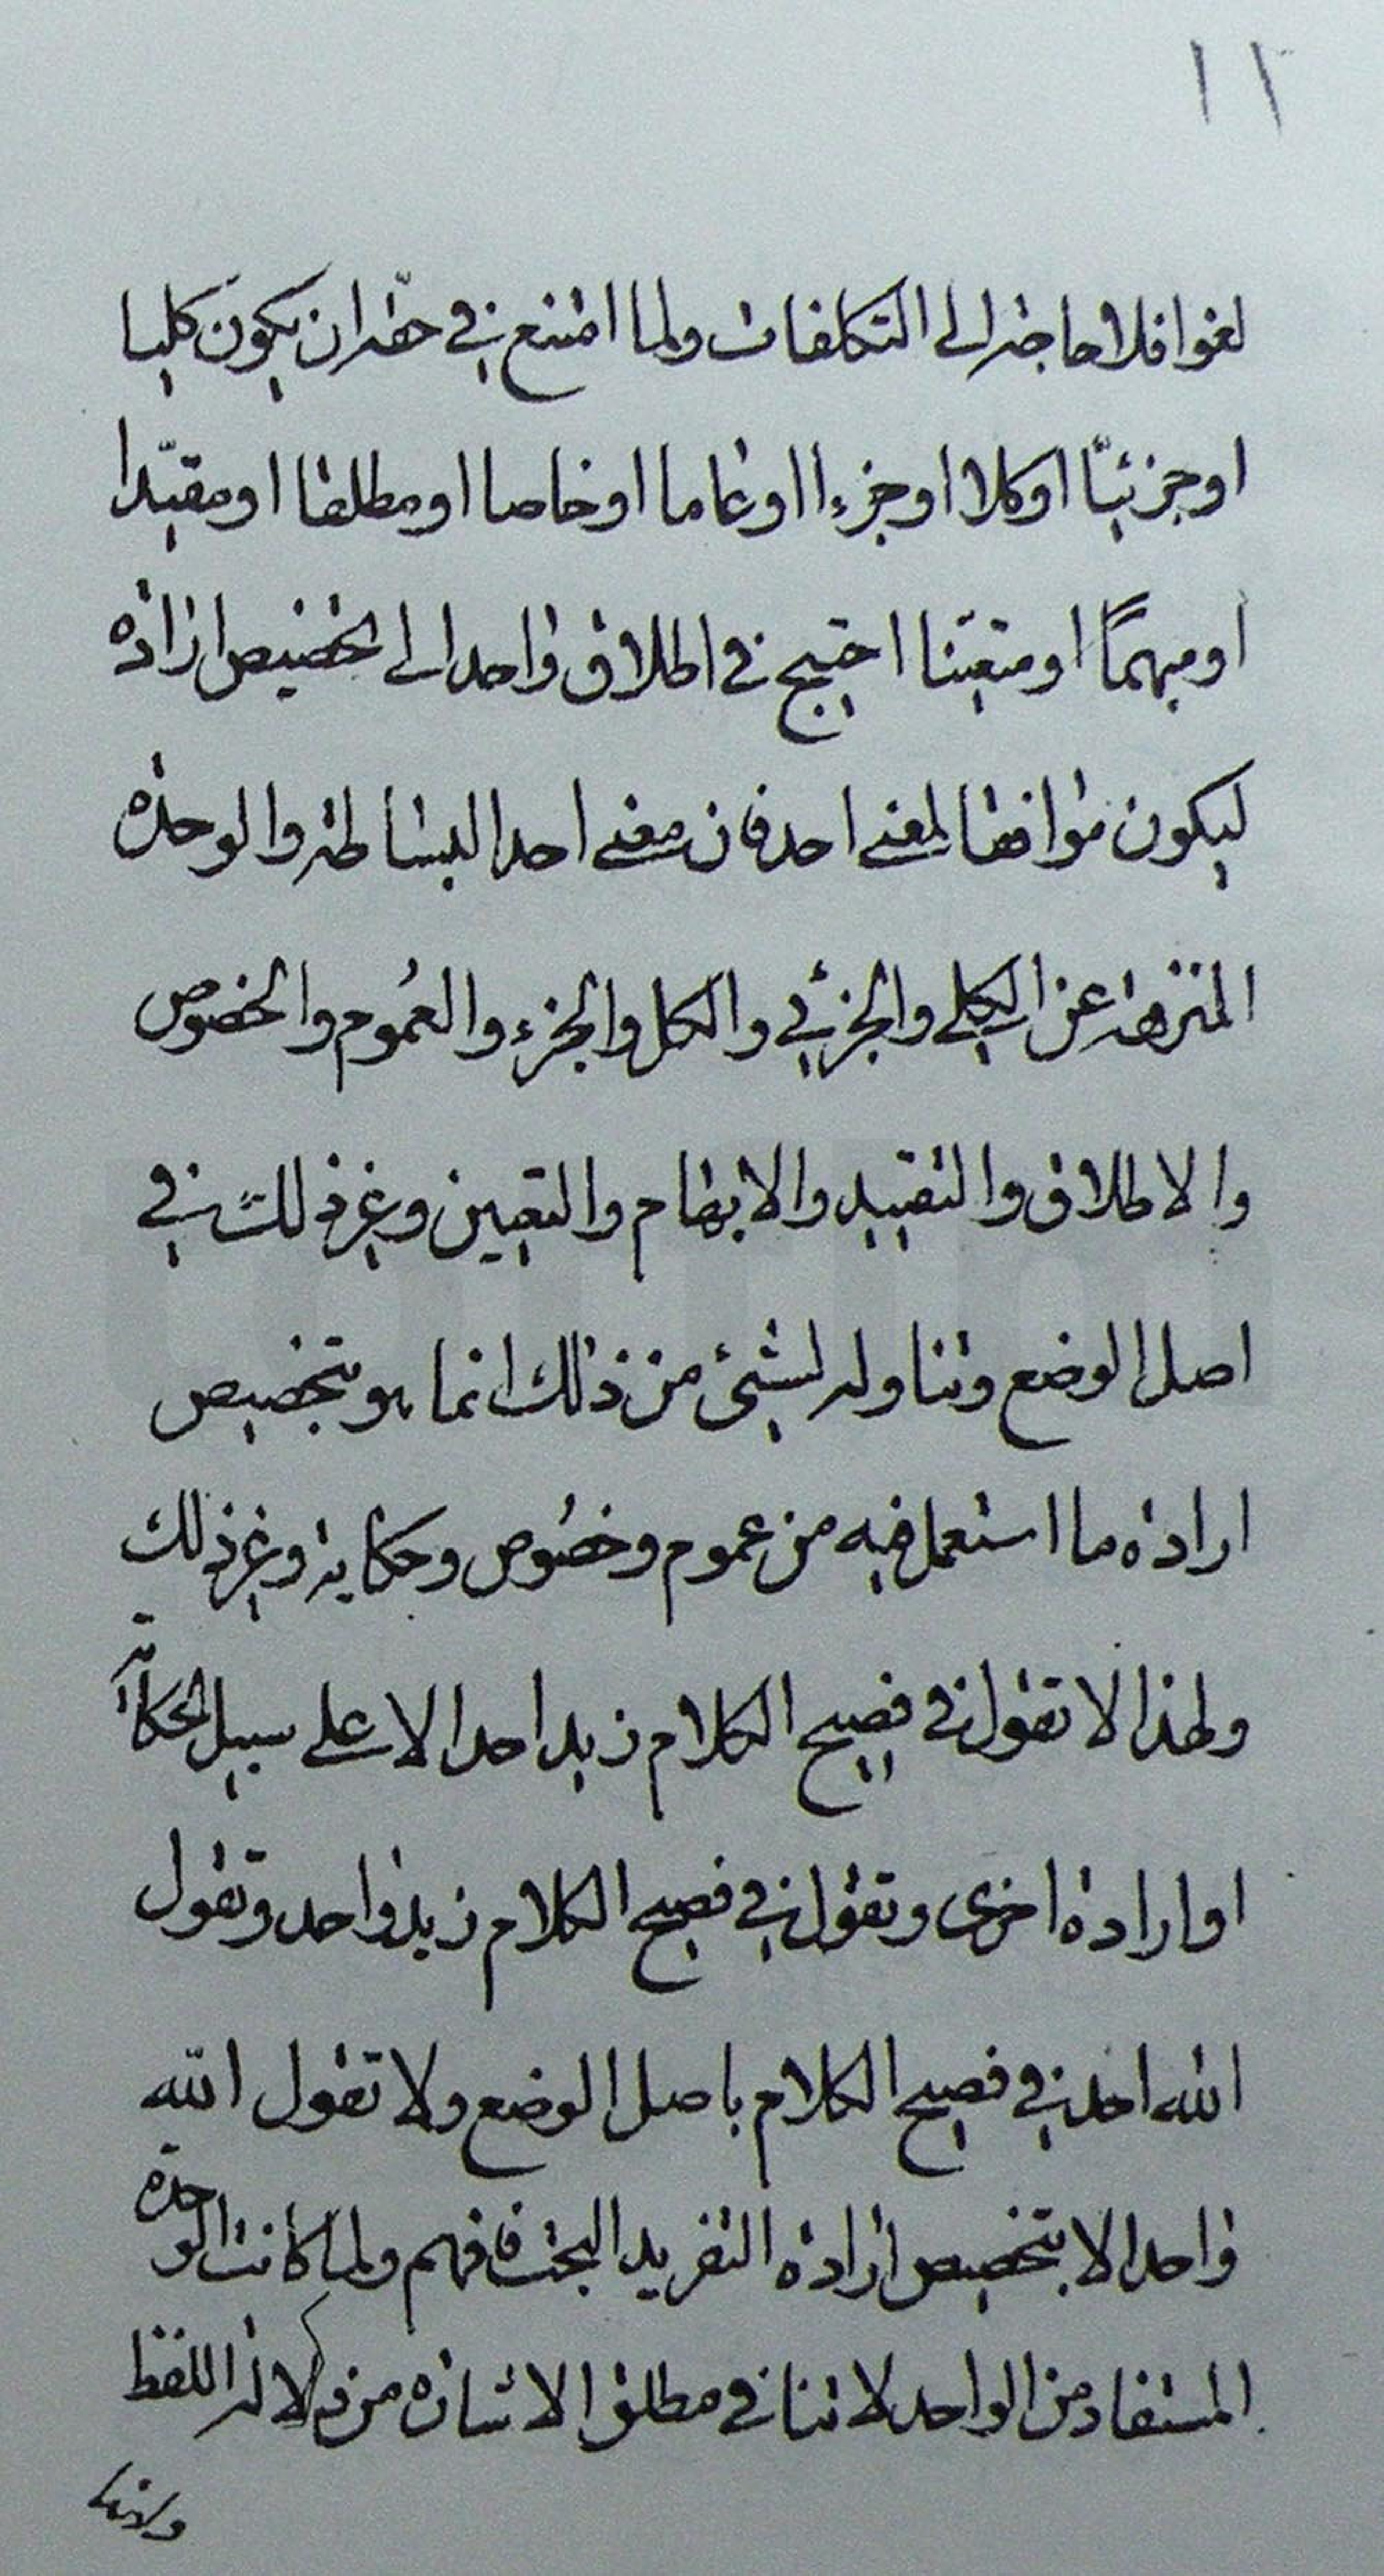 ١١
لغوا فلا حاجة الى التكلفات ولما امتنع في حقه ان يكون كليا
او جزئيّا او كلا او جزءا او عاما او خاصا او مطلقا او مقيّدا
او مبهماً او متعيّنا احتيج في اطلاق واحد الى تخصيص ارادة
ليكون موافقا لمعنى احد فان معنى احد البساطة والوحدة
المنزهة عن الكلي والجزئي والكل والجزء والعُموم والخصوص
والاطلاق والتقييد والابهام والتعيين وغير ذلك في
اصل الوضع وتناوله لشيئ من ذلك انما هو بتخصيص
ارادة ما استعمل فيه من عموم وخصُوص وحكاية وغير ذلك
ولهذا لا تقول في فصيح الكلام زيد احد الا على سبيل الحكاية
او ارادة اخرى وتقول في فصيح الكلام زيد واحد وتقول
الله احد في فصيح الكلام باصل الوضع ولا تقول الله
واحد الا بتخصيص ارادة التفريد البحت فافهم ولما كانت الوحدة
المستفاد من الواحد لا تنافي مطلق الاشارة من دلالة اللفظ